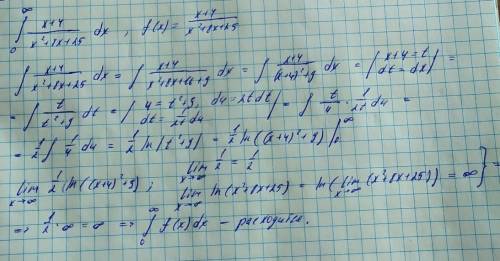 ∫₀^∞ (x+4)/(x²+8x+25) dx , f(x) = (x+4)/(x²+8x+25)
∫ (x+4)/(x²+8x+25) dx = ∫ (x+4)/(x²+8x+16+9) dx = ∫ (x+4)/((x+4)²+9) dx = | x+4=t dt=dx | =
= ∫ t/(t²+9) dt = | u = t²+9, du = 2t dt dt = 1/(2t) du | = ∫ t/u · 1/(2t) du =
= 1/2 ∫ 1/u du = 1/2 ln(t²+9) = 1/2 ln((x+4)²+9) |₀^∞
lim x→∞ 1/2 ln((x+4)²+9) ; lim x→∞ 1/2 = 1/2 lim x→∞ ln(x²+8x+25) = ln(lim x→∞ (x²+8x+25)) = ∞ } ⇒
⇒ 1/2 · ∞ = ∞ ⇒ ∫₀^∞ f(x)dx – расходится.